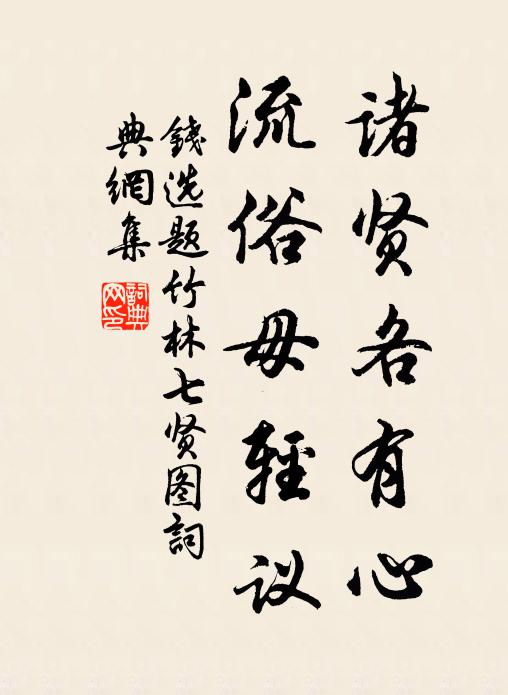 诸贤各有心
流俗毋轻议
錢选题竹林七贤图詞
典網集
詞典
网印